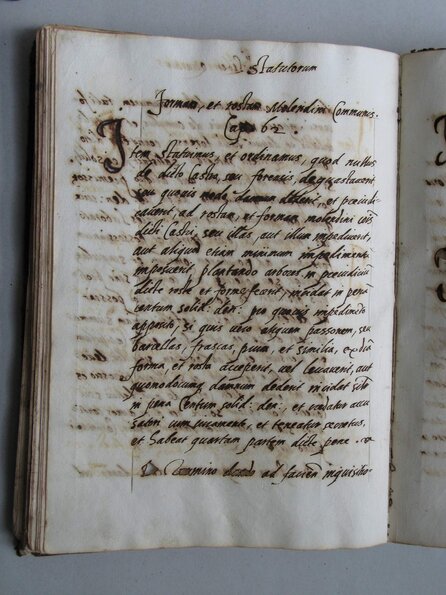 Statutorum
formam, et rostam Molendini Communis.
Cap. 62.
Item statuimus, et ordinamus, quod nullus
de dicto Castro, seu forensis deguastaverit,
seu quovis modo damnum dederit, et
ad rostam, et formam molendini
dicti Castri, seu illas, aut illam impediverit,
aut aliquod etiam minimum impedimentum
imposuerit plantando arbores, in
dicte roste et forme fecerit, incidat in
centum solid: den: pro quovis impedimento
apposito, si quis vero aliquem passonem, seu
barcellas, frascas, et similia, ex dicta
forma et rosta acceperit, vel levaverit, aut
quomodocumque damnum dederit incidat
in pena Centum solid: den: et credatur accu
satori cum iuramento, et teneatur secretus,
et habeat quartam partem dicte pene.
De Termino ad inquisitio